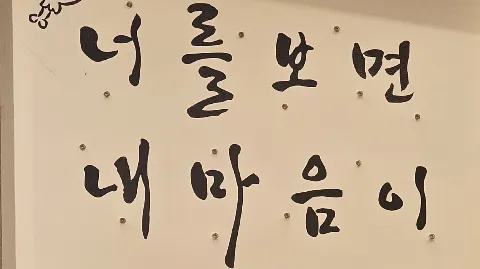 너를보면
내마음이